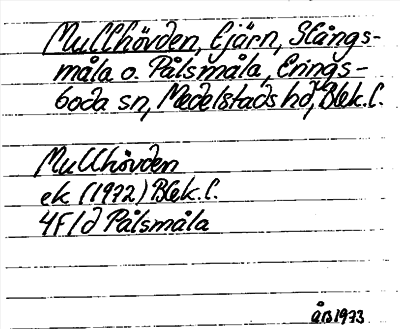 Mullhövden, tjärn, Stångs-
måla o. Pålsmåla, Erings-
boda sn, Medelstads hd, Blek.l.
Mullhövden
ek (1972) Blek.l.
4F1d Pålsmåla
ÅB 1973